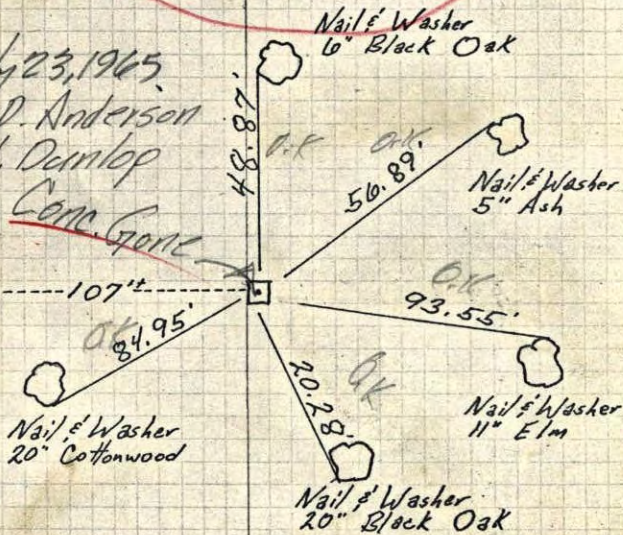 Nail & Washer
6" Black Oak
23, 1965
D. Anderson
Dunlop
Conc. Gone
48.87'
O.K
O.K
56.89'
Nail & Washer
5" Ash
107'±
O.K
93.55'
OK
84.95'
20.28'
OK
Nail & Washer
20" Cottonwood
Nail & Washer
11" Elm
Nail & Washer
20" Black Oak